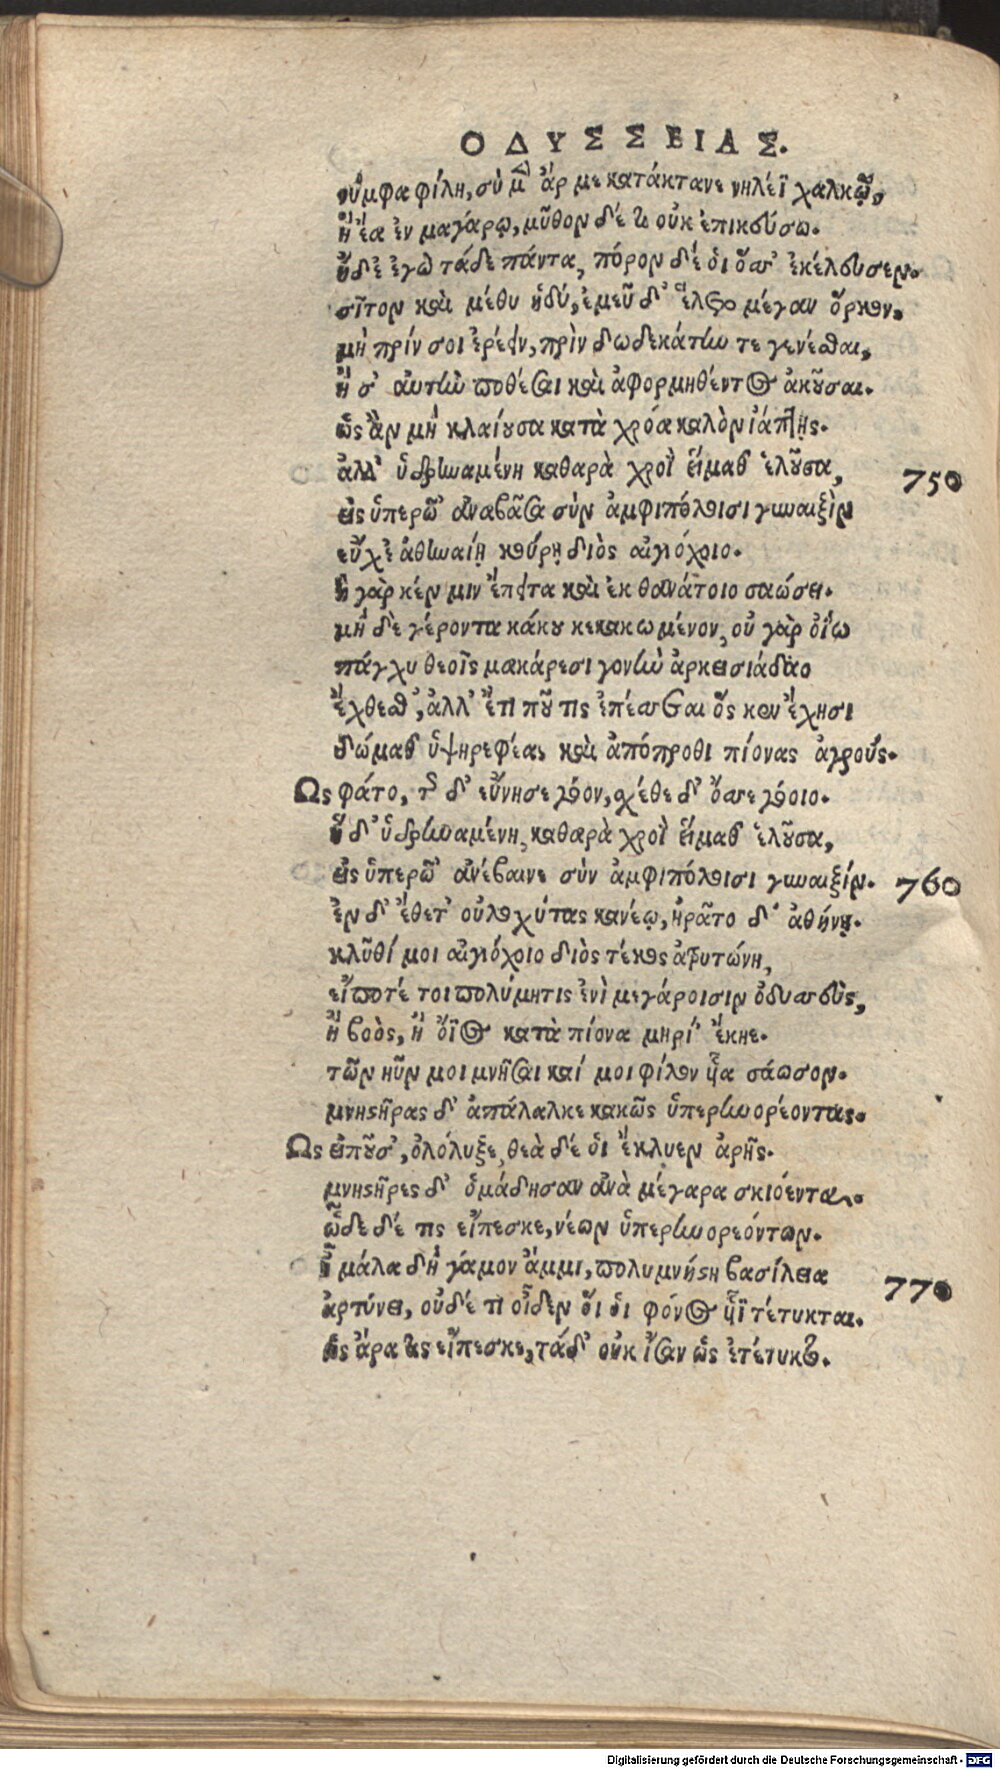 ΟΔΥΣΣΕΙΑΣ.
νύμφα φίλη, σὺ μὲν ἂρ με κατάκτανε νηλέϊ χαλκῷ,
ἢ ἔα ἐν μεγάρῳ, μῦθον δέ τοι οὐκ ἐπικεύσω.
ᾔδε' ἐγὼ τάδε πάντα, πόρον δέ οἱ ὅσσ' ἐκέλευσεν.
σῖτον καὶ μέθυ ἡδύ, ἐμεῦ δ' ἕλετο μέγαν ὅρκον.
μὴ πρίν σοι ἐρέειν, πρὶν δωδεκάτην τε γενέσθαι,
ἢ σ' αὐτὴν ποθέσαι καὶ ἀφορμηθέντος ἀκοῦσαι.
ὡς ἂν μὴ κλαίουσα κατὰ χρόα καλὸν ἰάπτης.
ἀλλ' ὑδρηναμένη καθαρὰ χροῒ εἵμαθ' ἑλοῦσα, 750
εἰς ὑπερῷ' ἀναβᾶσα σὺν ἀμφιπόλοισι γυναιξὶν
εὔχε' ἀθηναίῃ κούρῃ διὸς αἰγιόχοιο.
ἡ γὰρ κέν μιν ἔπειτα καὶ ἐκ θανάτοιο σαώσει.
μὴ δὲ γέροντα κάκου κεκακωμένον, οὐ γὰρ ὀΐω
πάγχυ θεοῖς μακάρεσι γονὴν ἀρκεισιάδαο
ἔχθεσθ', ἀλλ' ἔτι πού τις ἐπέσσεται ὅς κεν ἔχησι
δώμαθ' ὑψηρεφέα, καὶ ἀπόπροθι πίονας ἀγρούς.
Ως φάτο, τῆς δ' εὔνησε γόον, σχέθε δ' ὄσσε γόοιο.
ἡ δ' ὑδρηναμένη, καθαρὰ χροῒ εἵμαθ' ἑλοῦσα,
εἰς ὑπερῷ' ἀνέβαινε σὺν ἀμφιπόλοισι γυναιξίν. 760
ἐν δ' ἔθετ' οὐλοχύτας κανέῳ, ἠρᾶτο δ' ἀθήνῃ.
κλῦθί μοι αἰγιόχοιο διὸς τέκος ἀτρυτώνη,
εἴποτέ τοι πολύμητις ἐνὶ μεγάροισιν ὀδυσσεὺς,
ἢ βοὸς, ἢ ὄϊος κατὰ πίονα μηρί' ἔκηε.
τῶν νῦν μοι μνῆσαι καί μοι φίλον υἷα σάωσον.
μνηστῆρας δ' ἀπάλαλκε κακῶς ὑπερηνορέοντας.
Ως εἰποῦσ', ὀλόλυξε, θεὰ δέ οἱ ἔκλυεν ἀρῆς.
μνηστῆρες δ' ὁμάδησαν ἀνὰ μέγαρα σκιόεντα.
ὧδε δέ τις εἴπεσκε, νέων ὑπερηνορεόντων.
ἦ μάλα δὴ γάμον ἄμμι, πολυμνήστη βασίλεια 770
ἀρτύνει, οὐδέ τι οἶδεν ὅι οἱ φόνος υἷϊ τέτυκται.
ὣς ἄρα τις εἴπεσκε, τάδ' οὐκ ἴσαν ὡς ἐτέτυκτο.
Digitalisierung gefördert durch die Deutsche Forschungsgemeinschaft - DFG